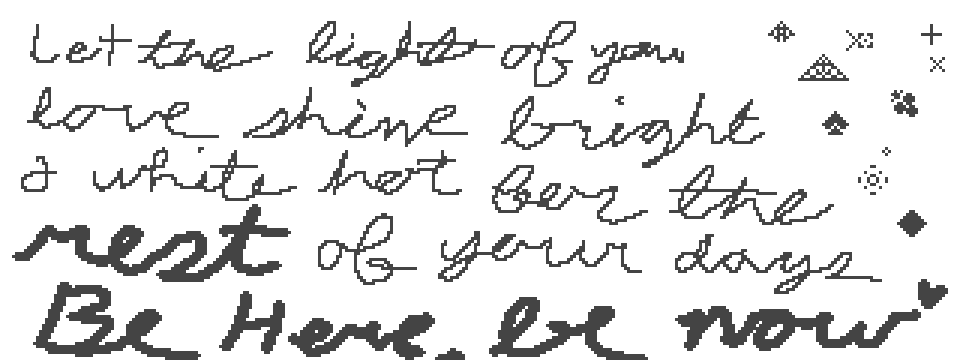 Let the light of your
love shine bright
a white hot for the
rest of your days
Be Here. be now